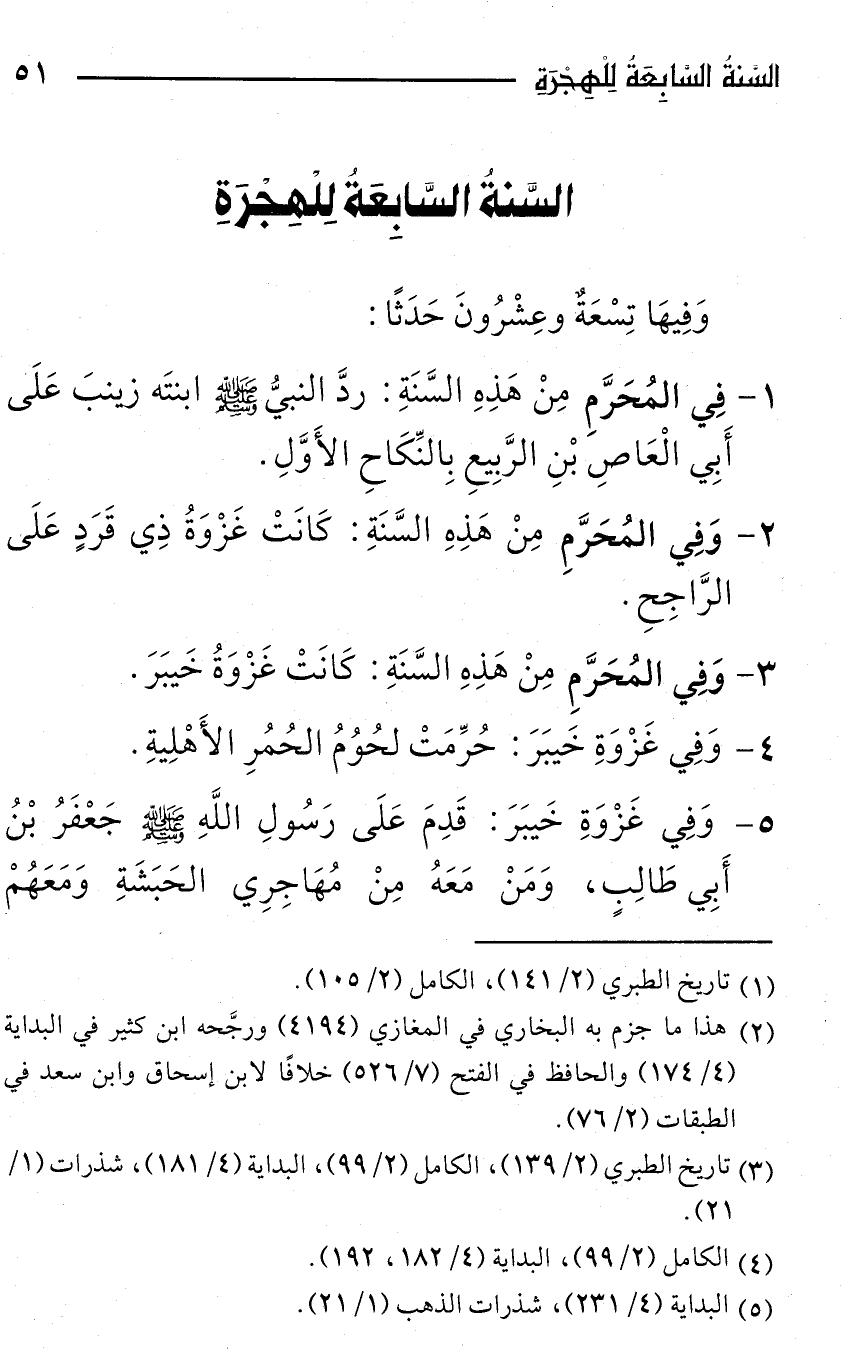 السَّنةُ السَّابِعَةُ لِلْهِجْرَةِ ٥١
السَّنةُ السَّابِعَةُ لِلْهِجْرَةِ
وَفِيهَا تِسْعَةٌ وعِشْرُونَ حَدَثًا :
١- فِي المُحَرَّمِ مِنْ هَذِهِ السَّنَةِ : ردَّ النبيُّ ﷺ ابنتَه زينبَ عَلَى
أَبِي الْعَاصِ بْنِ الرَّبِيعِ بِالنِّكَاحِ الأَوَّلِ .
٢- وَفِي المُحَرَّمِ مِنْ هَذِهِ السَّنَةِ : كَانَتْ غَزْوَةُ ذِي قَرَدٍ عَلَى
الرَّاجِحِ .
٣- وَفِي المُحَرَّمِ مِنْ هَذِهِ السَّنَةِ : كَانَتْ غَزْوَةُ خَيبَرَ .
٤- وَفِي غَزْوَةِ خَيبَرَ : حُرِّمَتْ لحُوُمُ الحُمُرِ الأَهْلِيةِ .
٥- وَفِي غَزْوَةِ خَيبَرَ : قَدِمَ عَلَى رَسُولِ اللَّهِ ﷺ جَعْفَرُ بْنُ
أَبِي طَالِبٍ، وَمَنْ مَعَهُ مِنْ مُهَاجِرِي الحَبَشَةِ وَمَعَهُمْ
(١) تاريخ الطبري (٢/ ١٤١)، الكامل (٢/ ١٠٥).
(٢) هذا ما جزم به البخاري في المغازي (٤١٩٤) ورجَّحه ابن كثير في البداية
(٤/ ١٧٤) والحافظ في الفتح (٧/ ٥٢٦) خلافًا لابن إسحاق وابن سعد في
الطبقات (٢/ ٧٦).
(٣) تاريخ الطبري (٢/ ١٣٩)، الكامل (٢/ ٩٩)، البداية (٤/ ١٨١)، شذرات (١/
٢١).
(٤) الكامل (٢/ ٩٩)، البداية (٤/ ١٨٢، ١٩٢).
(٥) البداية (٤/ ٢٣١)، شذرات الذهب (١/ ٢١).